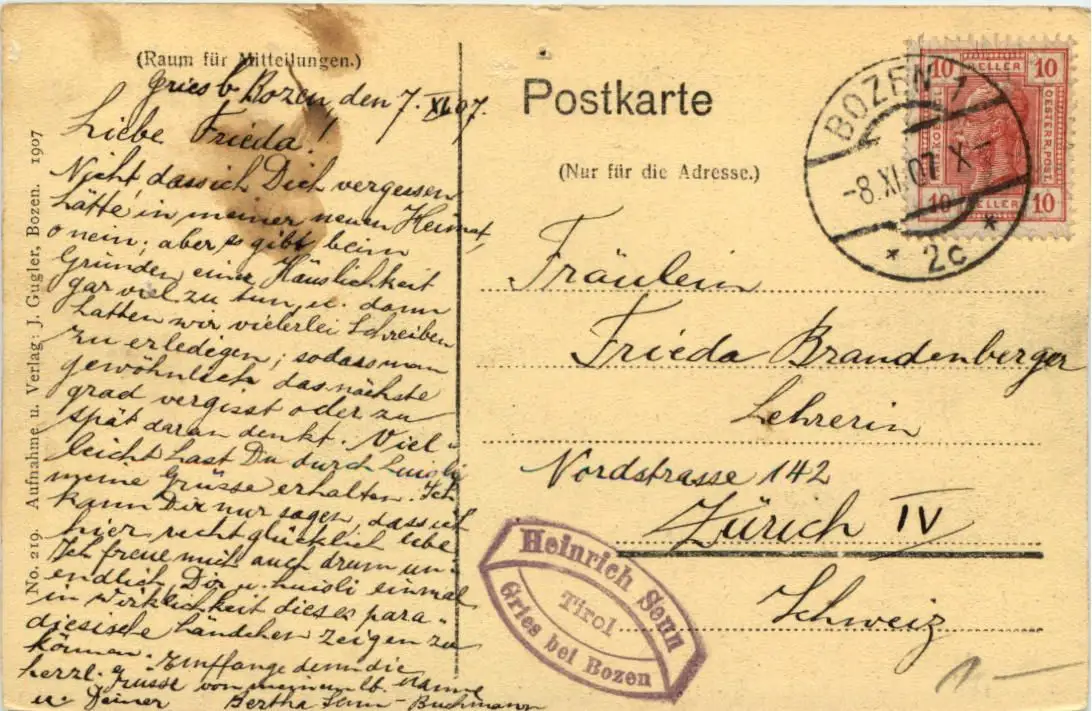 (Raum für Mitteilungen.)
Gries b. Bozen, den 7. XI. 07.
Liebe Frieda!
Nicht dass ich Dich vergessen
hätte in meiner neuen Heimat,
o nein; aber es gibt beim
Gründen einer Häuslichkeit
gar viel zu tun, u. dann
hatten wir vielerlei Schreiben
zu erledigen; sodass man
gewöhnlich das nächste
grad vergisst oder zu
spät daran denkt. Viel-
leicht hast Du durch Luisli
meine Grüsse erhalten. Ich
kann Dir nur sagen, dass ich
hier recht glücklich lebe.
Ich freue mich auch drum un-
endlich, Dir u. Luisli einmal
in Wirklichkeit dieses para-
diesische Ländchen zeigen zu
können. Empfange denn die
herzl. Grüsse von meinem lb. Manne
u. Deiner Bertha Senn-Buchmann
No. 219. Aufnahme u. Verlag: J. Gugler, Bozen. 1907
Postkarte
(Nur für die Adresse.)
Fräulein
Frieda Brandenberger
Lehrerin
Nordstrasse 142
Zürich IV
Schweiz
Heinrich Senn
Tirol
Gries bei Bozen
BOZEN 1
-8.XI.07 X-
* 2c *
10 HELLER 10
OESTERR. POST
10 HELLER 10